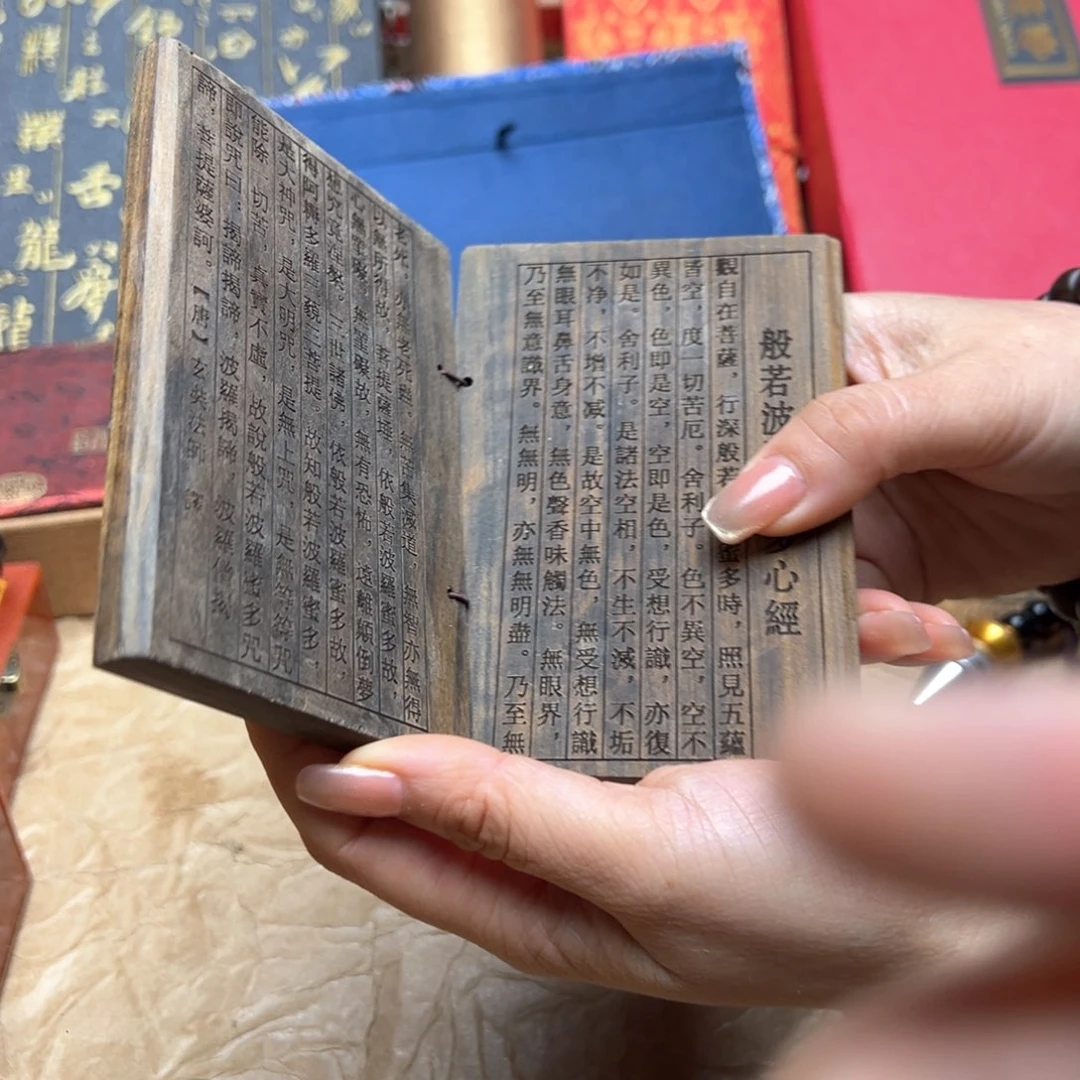 般若波
多心經
觀自在菩薩，行深般若
蜜多時，照見五蘊
皆空，度一切苦厄。舍利子。色不異空，空不
異色，色即是空，空即是色，受想行識，亦復
如是。舍利子。是諸法空相，不生不滅，不垢
不净，不增不减。是故空中無色，無受想行識
無眼耳鼻舌身意，無色聲香味觸法。無眼界，
乃至無意識界。無無明，亦無無明盡。乃至無
老死，亦無老死盡。無苦集滅道，無智亦無得
以無所得故，菩提薩埵，依般若波羅蜜多故，
心無罣礙。無罣礙故，無有恐怖，遠離顛倒夢
想究竟涅槃。三世諸佛，依般若波羅蜜多故，
得阿耨多羅三藐三菩提。故知般若波羅蜜多，
是大神咒，是大明咒，是無上咒，是無等等咒
能除一切苦，真實不虛，故說般若波羅蜜多咒
即說咒曰，揭諦揭諦，波羅揭諦，波羅僧揭
諦，菩提薩婆訶。【唐】玄奘法師